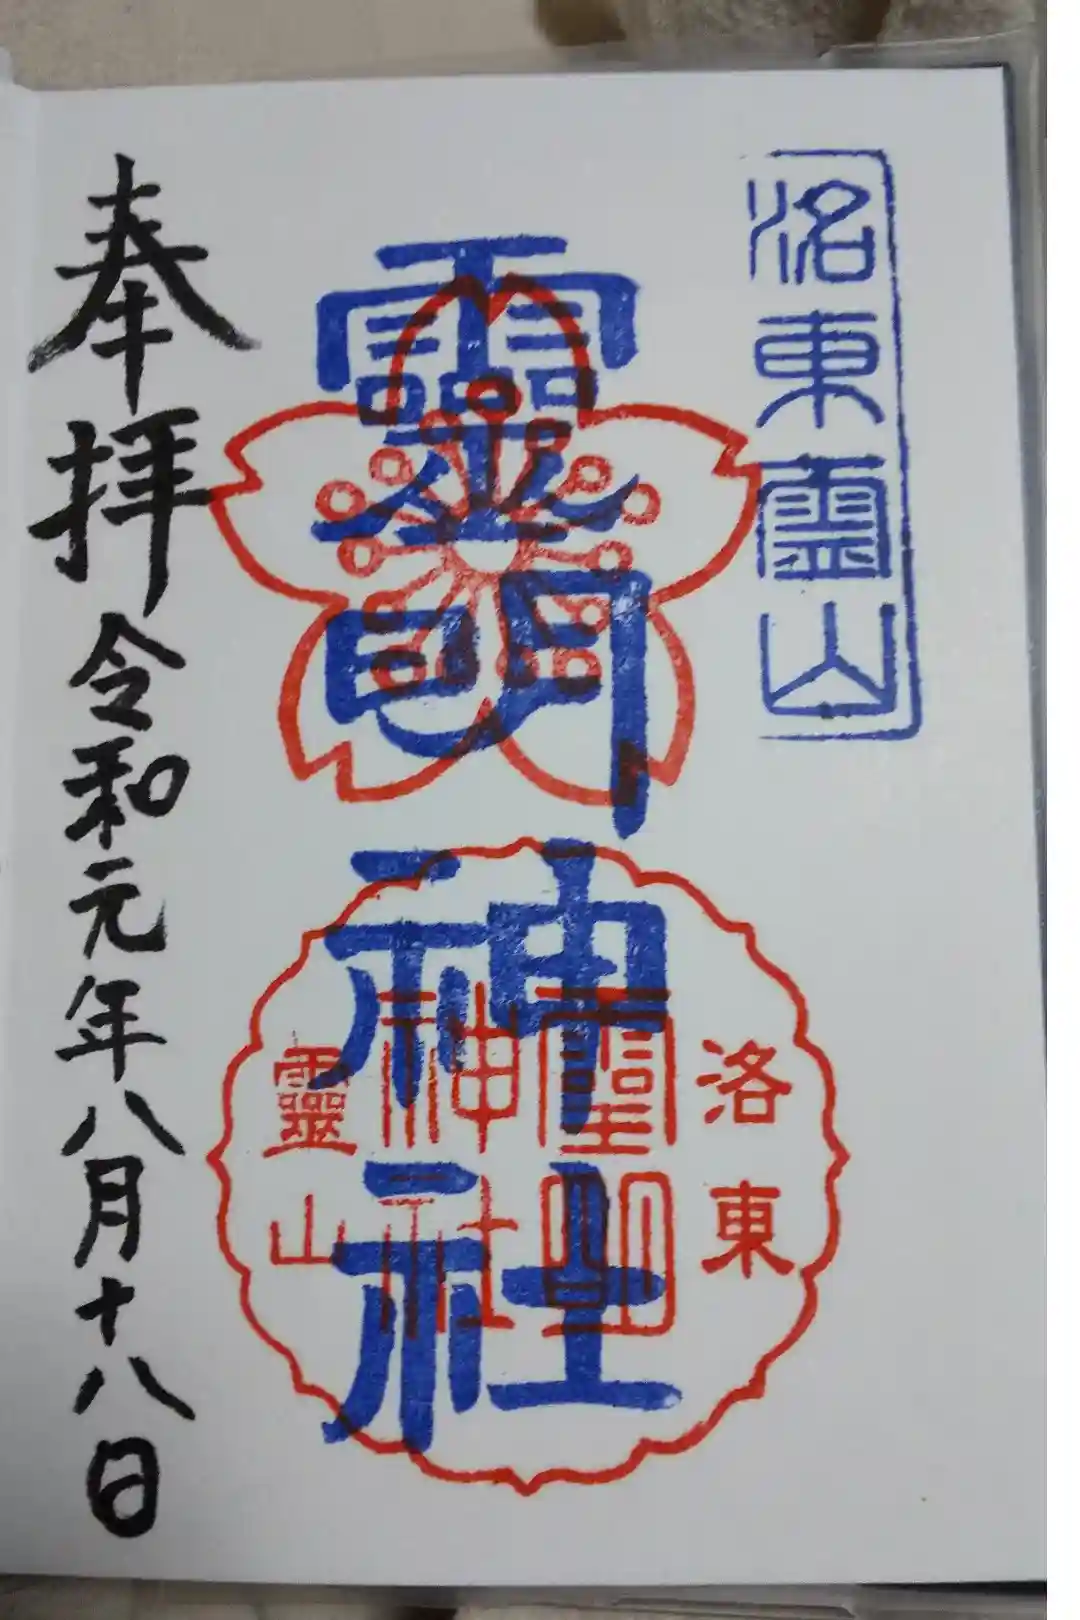 洛東靈山
靈明神社
洛東
靈明
神社
靈山
奉拝
令和元年八月十八日